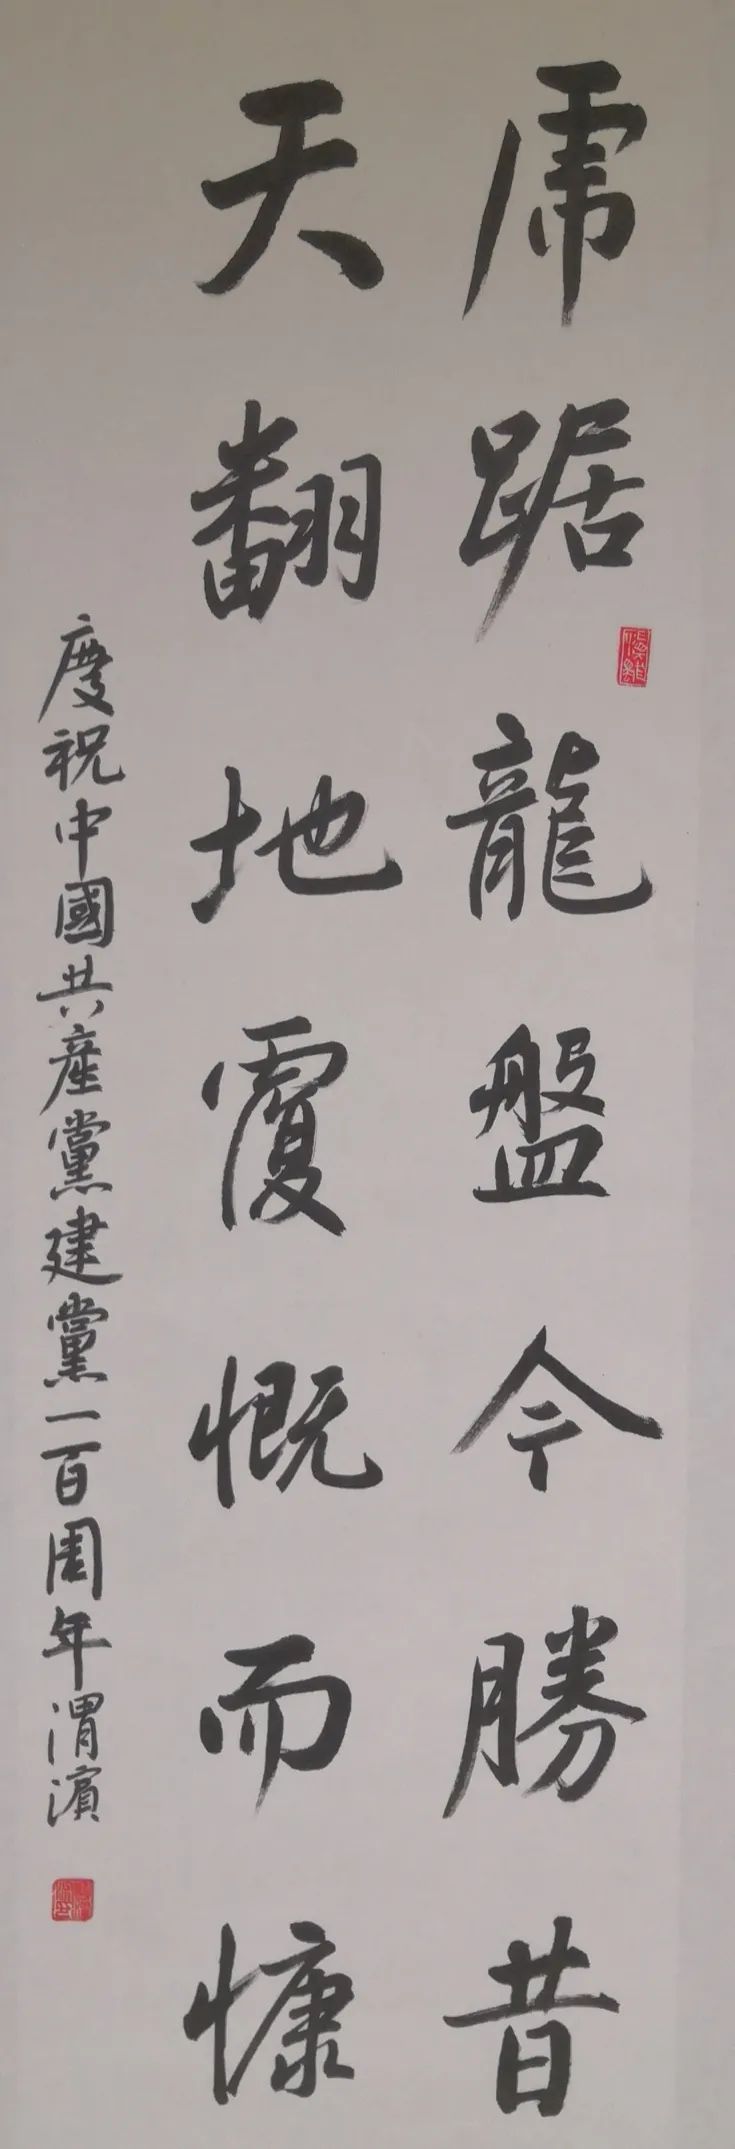 虎踞龍盤今勝昔
天翻地覆慨而慷
慶祝中國共產黨建黨一百周年渭濱